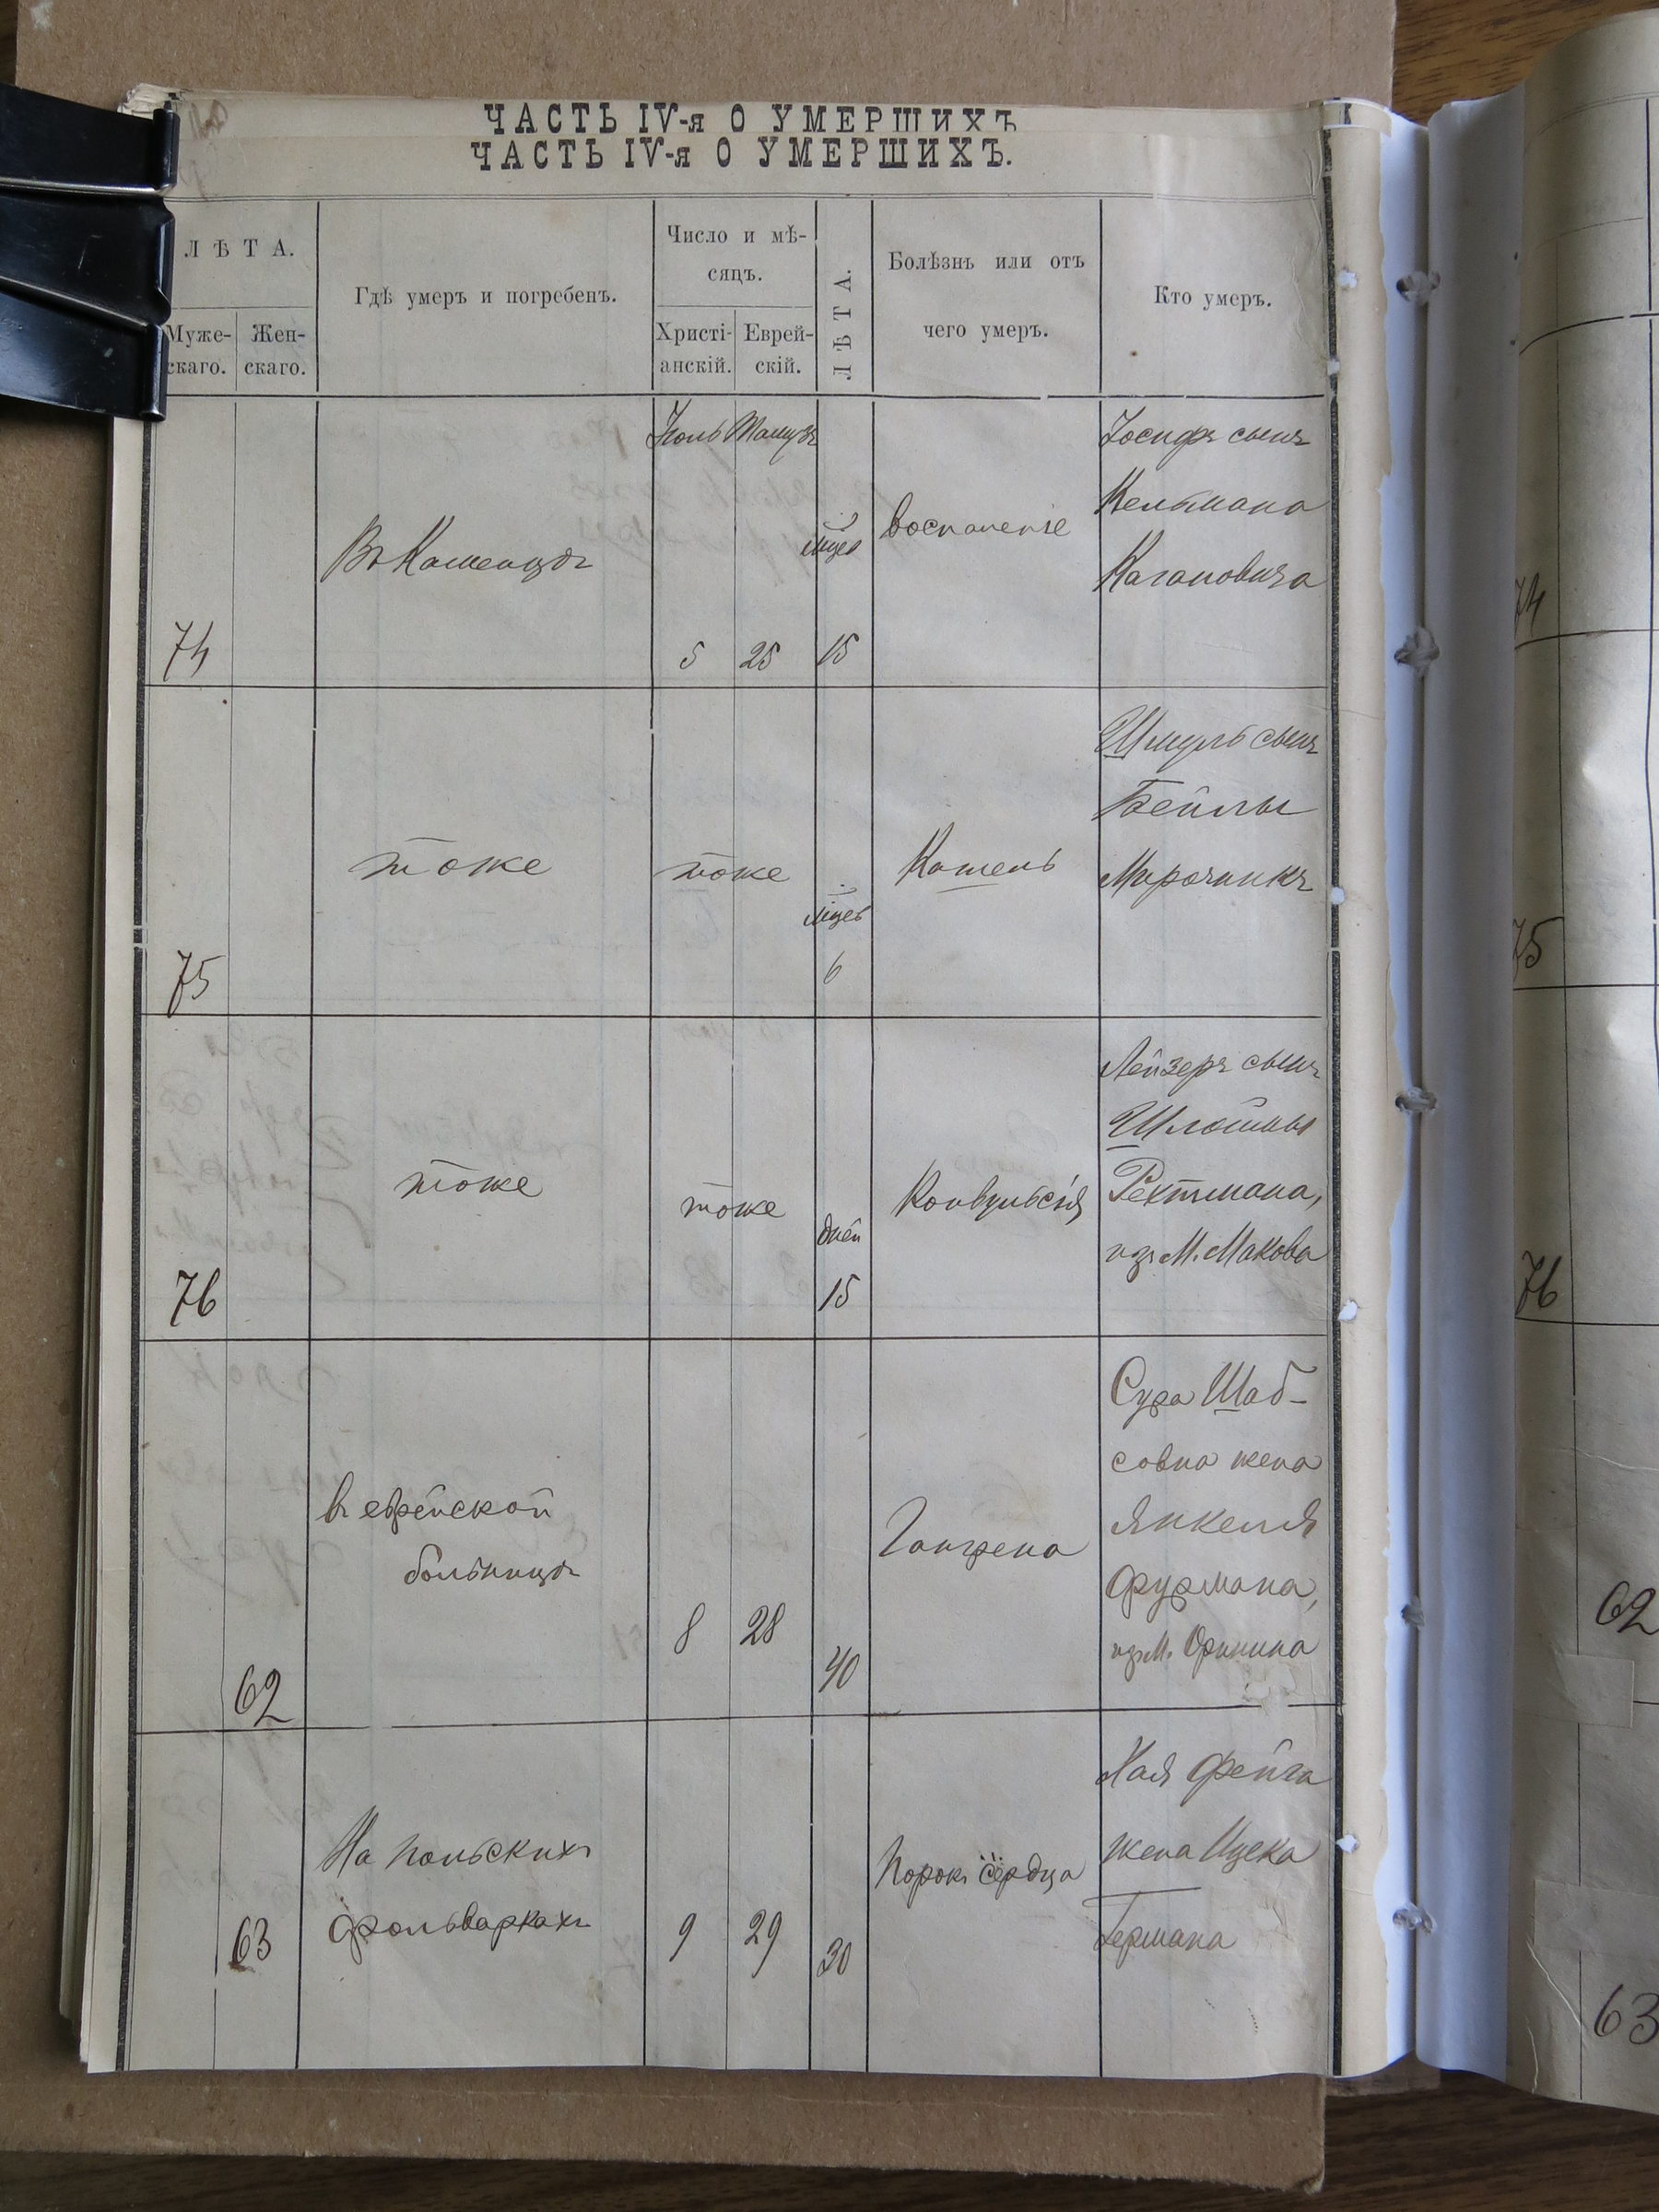 ЧАСТЬ IV-я О УМЕРШИХЪ
ЧАСТЬ IV-я О УМЕРШИХЪ.
ЛѢТА.
Муже-
скаго.
Жен-
скаго.
Гдѣ умеръ и погребенъ.
Число и мѣ-
сяцъ.
Христі-
анскій.
Еврей-
скій.
ЛѢТА.
Болѣзнь или отъ
чего умеръ.
Кто умеръ.
74
Въ Каменцѣ
Іюль
Тамузъ
5
25
мцев
15
воспаленіе
Іосифъ сынъ
Кельмана
Кагановича
75
тоже
тоже
мцев
6
Кашель
Шмуль сынъ
Бейлы
Мирочникъ
76
тоже
тоже
дней
15
Конвульсія
Лейзеръ сынъ
Шлоймы
Рехтмана,
изъ М. Макова
62
въ еврейской
больницѣ
8
28
40
Гангрена
Сура Шаб-
совна жена
Янкеля
Фурмана,
изъ М. Оринина
63
На польскихъ
фольваркахъ
9
29
30
Порокъ сердца
Хая Фейга
жена Ицека
Германа
74
75
76
62
63